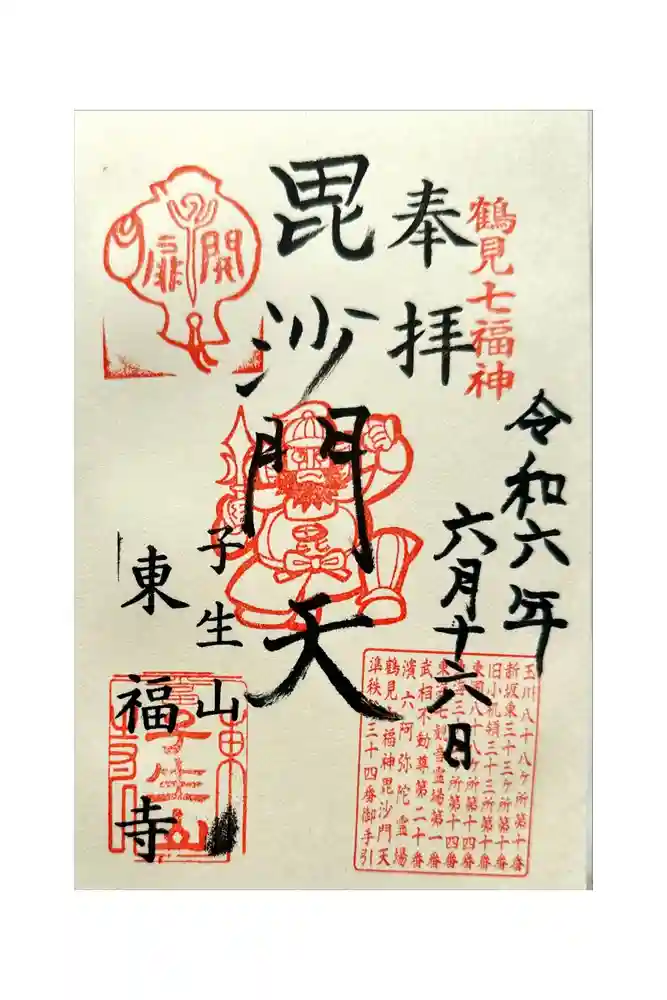 鶴見七福神
奉拝
令和六年
六月十六日
毘沙門天
開扉
毘
子生山
東福寺
玉川八十八ケ所第十番
新坂東三十三ケ所第十番
旧小机領三十三所第十番
武相不動尊第二十番
濱六阿弥陀霊場
鶴見七福神毘沙門天
準秩三十四番御手引
子生山